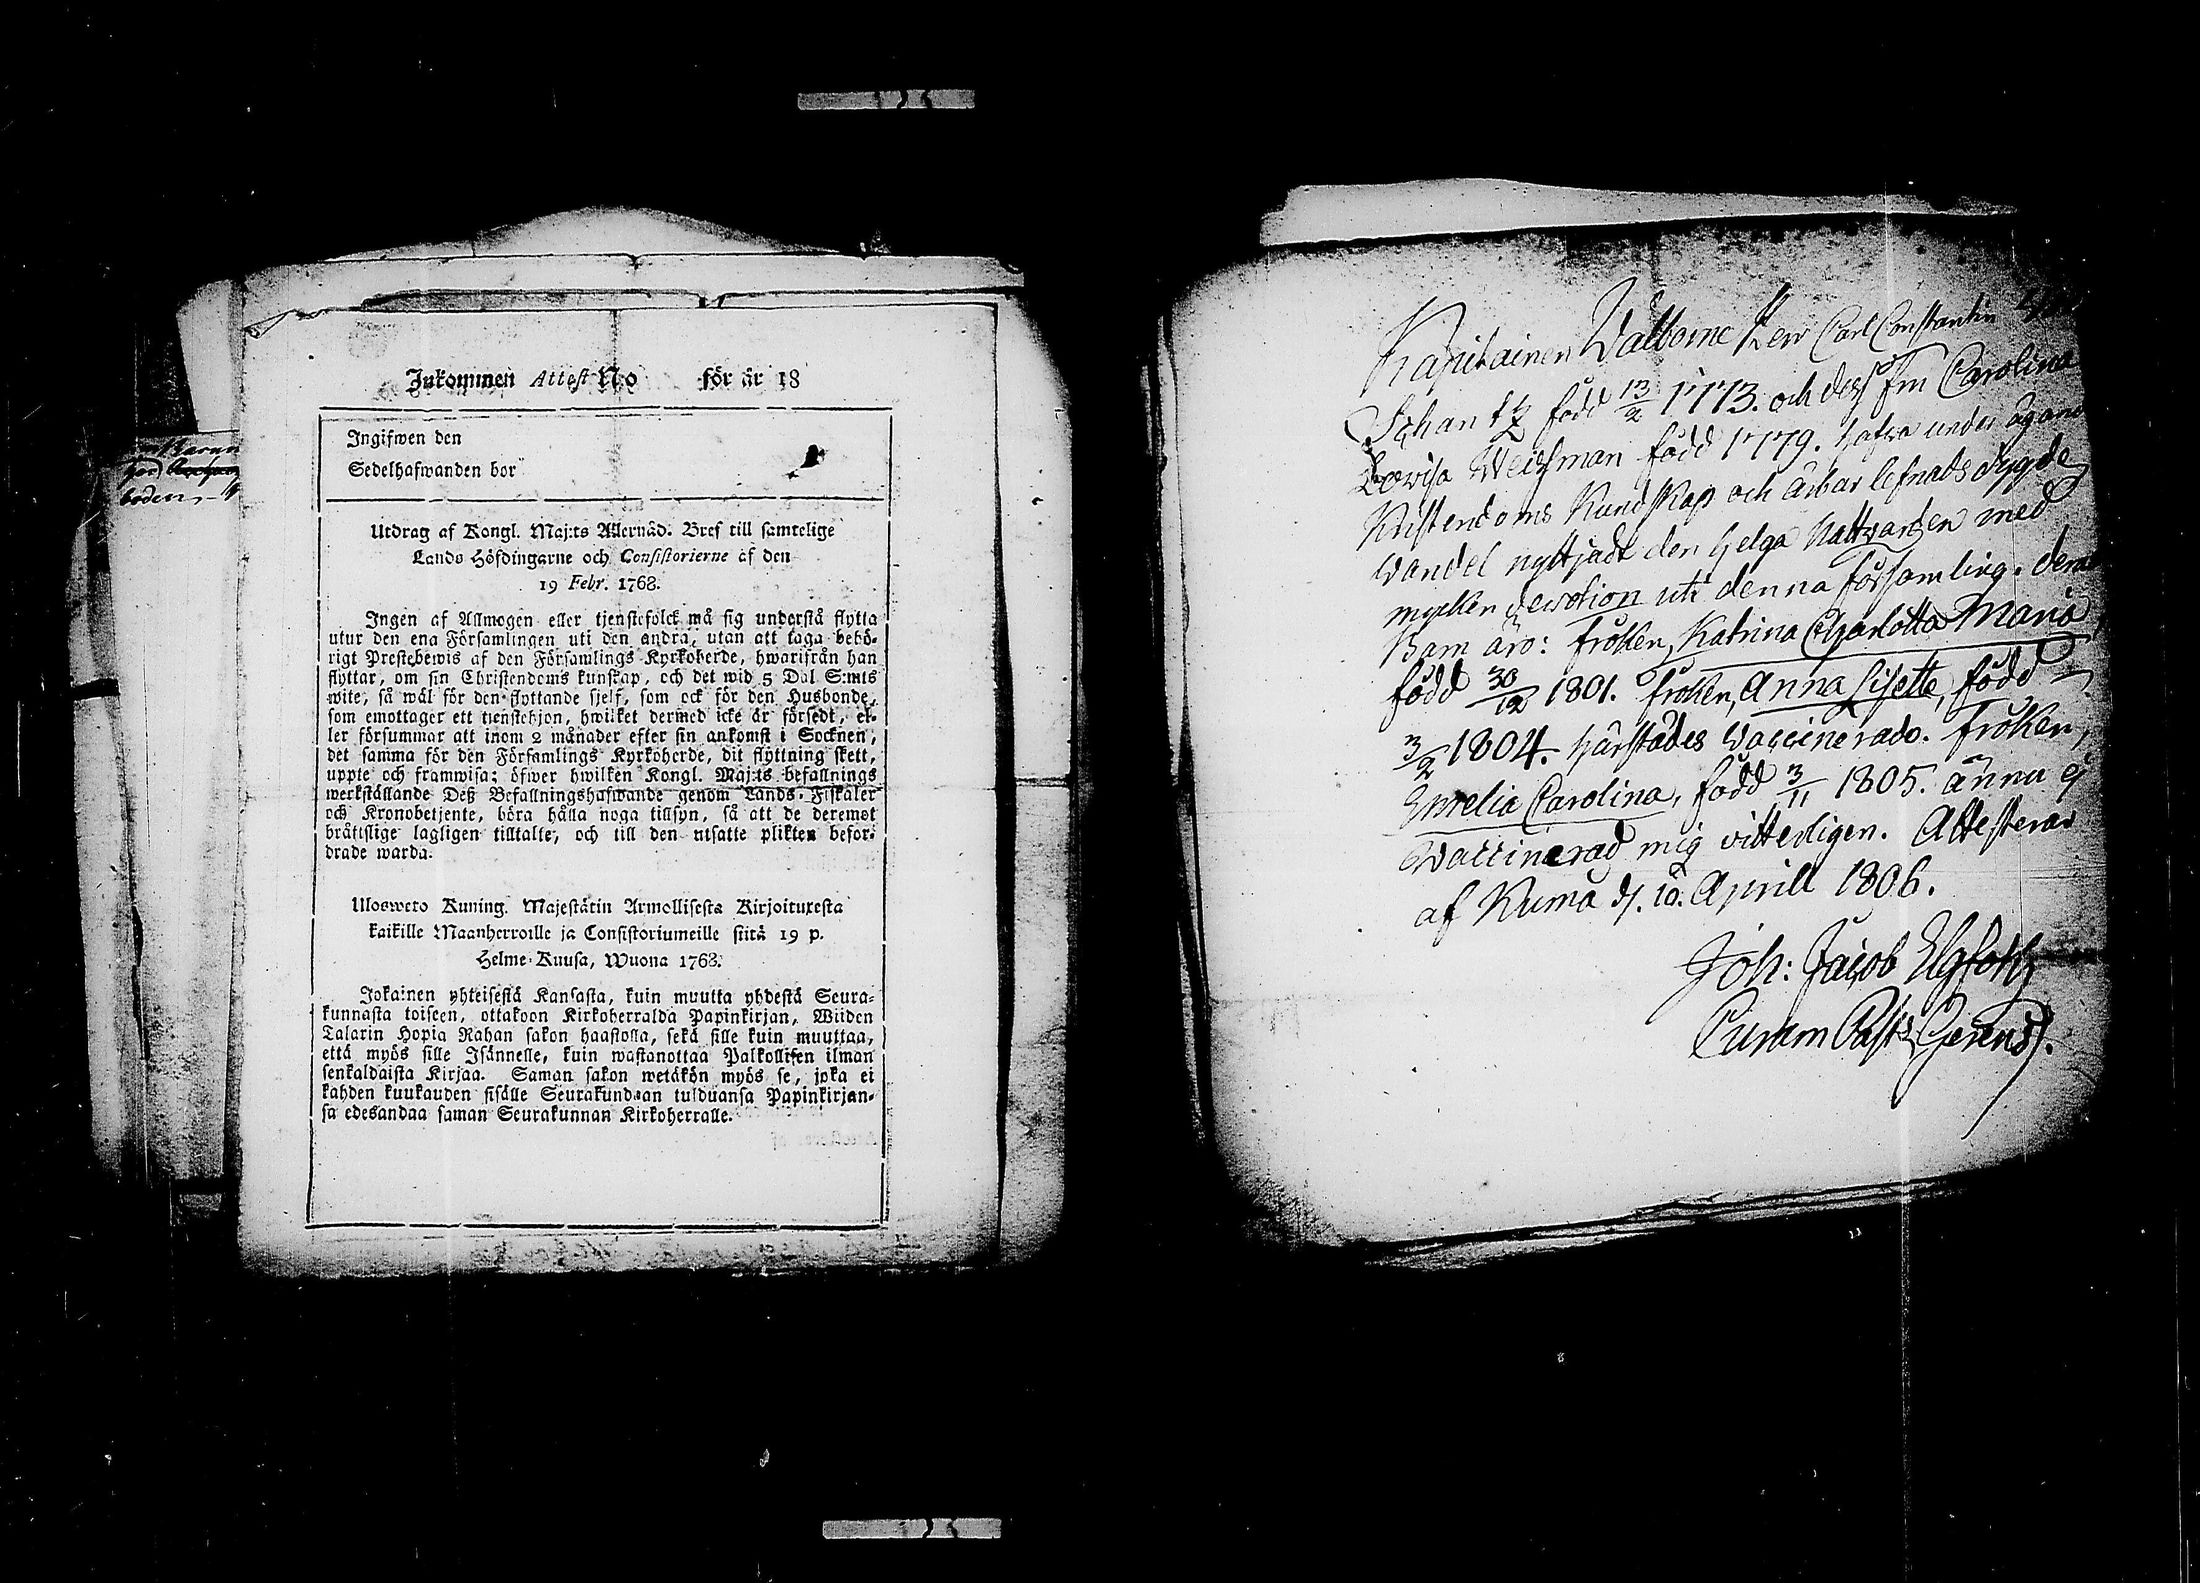 Inkommen Attest No för år 18
Ingifwen den
Sedelhafwanden bor
Utdrag af Kongl. Maj:ts Allernåd. Bref till samtelige
Lands Höfdingarne och Consistorierne af den
19 Febr. 1768.
Ingen af Allmogen eller tjenstefolck må sig understå flytta
utur den ena Församlingen uti den andra, utan att taga behö-
rigt Prestebewis af den Församlings Kyrkoherde, hwarifrån han
flyttar, om sin Christendoms kunskap, och det wid 5 Dal S:mts
wite, så wäl för den flyttande sjelf, som ock för den Husbonde,
som emottager ett tjenstehjon, hwilket dermed icke är försedt, el-
ler försummar att inom 2 månader efter sin ankomst i Socknen,
det samma för den Församlings Kyrkoherde, dit flyttning skett,
uppte och framwisa; öfwer hwilken Kongl. Maj:ts befallnings
werkställande Deß Befallningshafwande genom Lands-Fiskaler
och Kronobetjente, böra hålla noga tillsyn, så att de deremot
bråttslige lagligen tilltalte, och till den utsatte plikten befor-
drade warda.
Ulosweto Kuning. Majestätin Armollisesta Kirjoituxesta
kaikille Maanherroille ja Consistoriumeille siitä 19 p.
Helme-Kuusa, Wuona 1768.
Jokainen yhteisestä Kansasta, kuin muutta yhdestä Seura-
kunnasta toiseen, ottakoon Kirkoherralda Papinkirjan, Wiiden
Talarin Hopia Rahan sakon haastolla, sekä sille kuin muuttaa,
että myös sille Isännelle, kuin wastanottaa Palkollisen ilman
senkaldaista Kirjaa. Saman sakon wetäkön myös se, joka ei
kahden kuukauden sisälle Seurakundaan tulduansa Papinkirjan-
sa edesandaa saman Seurakunnan Kirkoherralle.
boden,
Kapitainen Walborne Herr Carl Constantin
född 13/2 1773. och dess Fru Carolina
Lowisa Weissman född 1779. hafva under ägand
Kristendoms Kundskap och ärbar lefnads dygde
wandel nyttjadt den helga Nattvarden med
mycken devotion uti denna församling. deras
Barn äro: fröken, Katrina Charlotta Maria,
född 30/12 1801. fröken, Anna Lisette, född
3/2 1804. härstädes vaccinerade. Fröken,
Emelia Carolina, född 3/11 1805. ännu ej
Vaccinerad mig vitterligen. Attesterar
af Kumo d. 10. Aprill 1806.
Joh: Jacob Elgfoth
Curam Past: Gerens.